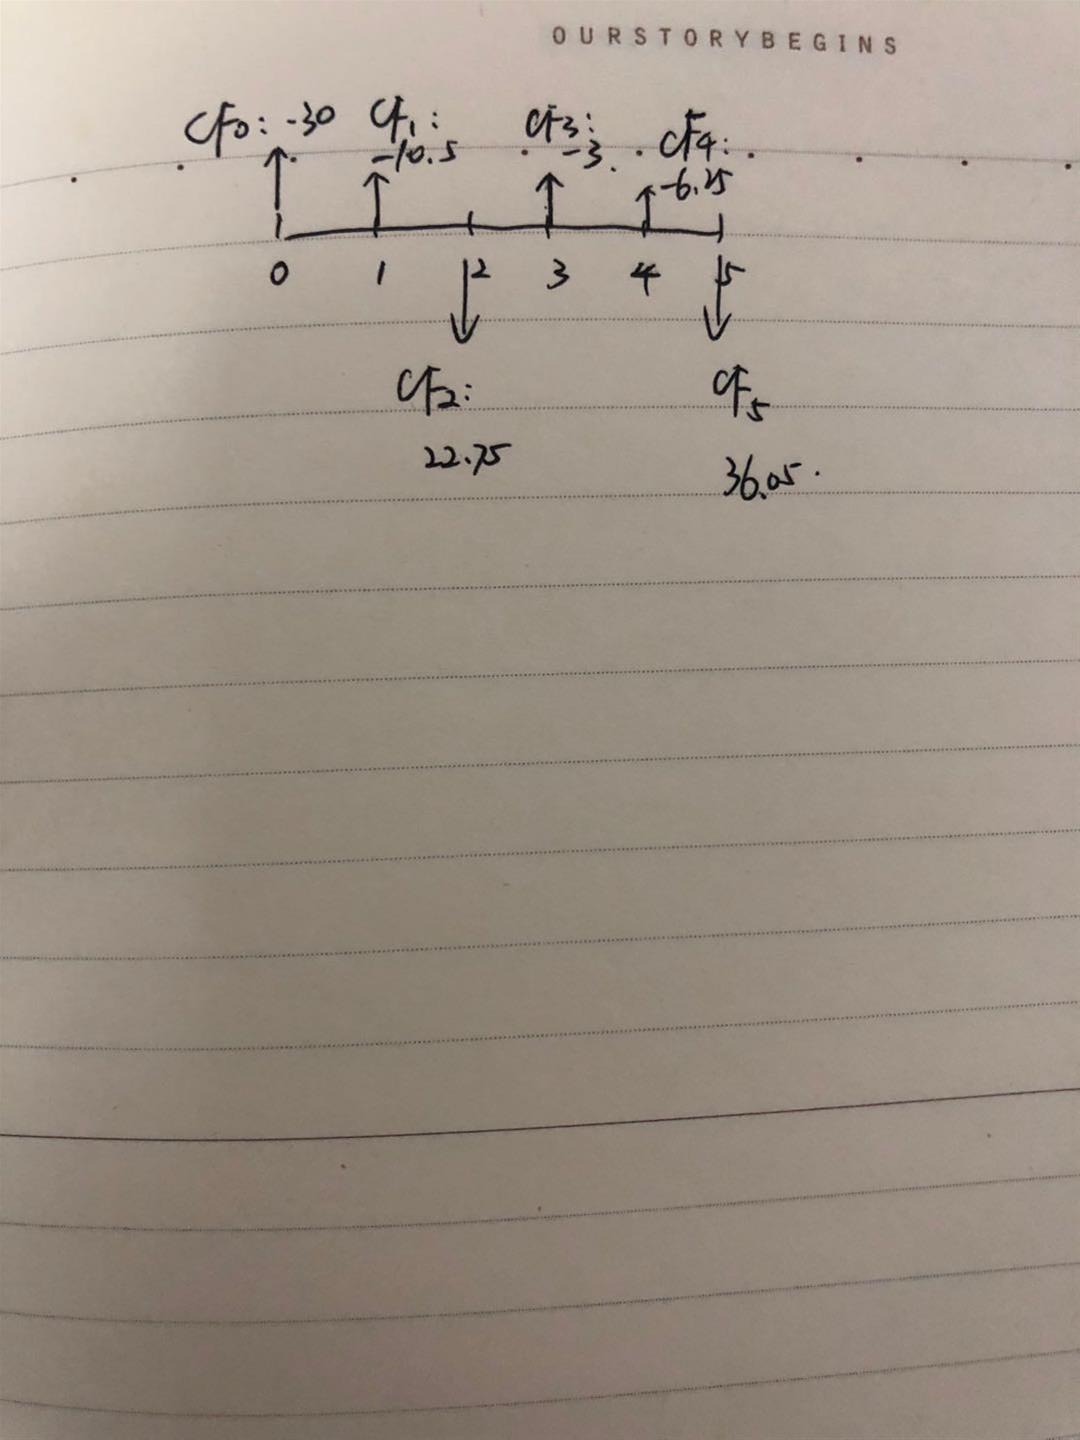 OURSTORYBEGINS
CF0: -30
CF1:
-10.5
CF3:
-3.
CF4:
-6.25
0 1 2 3 4 5
CF2:
22.75
CF5
36.05.